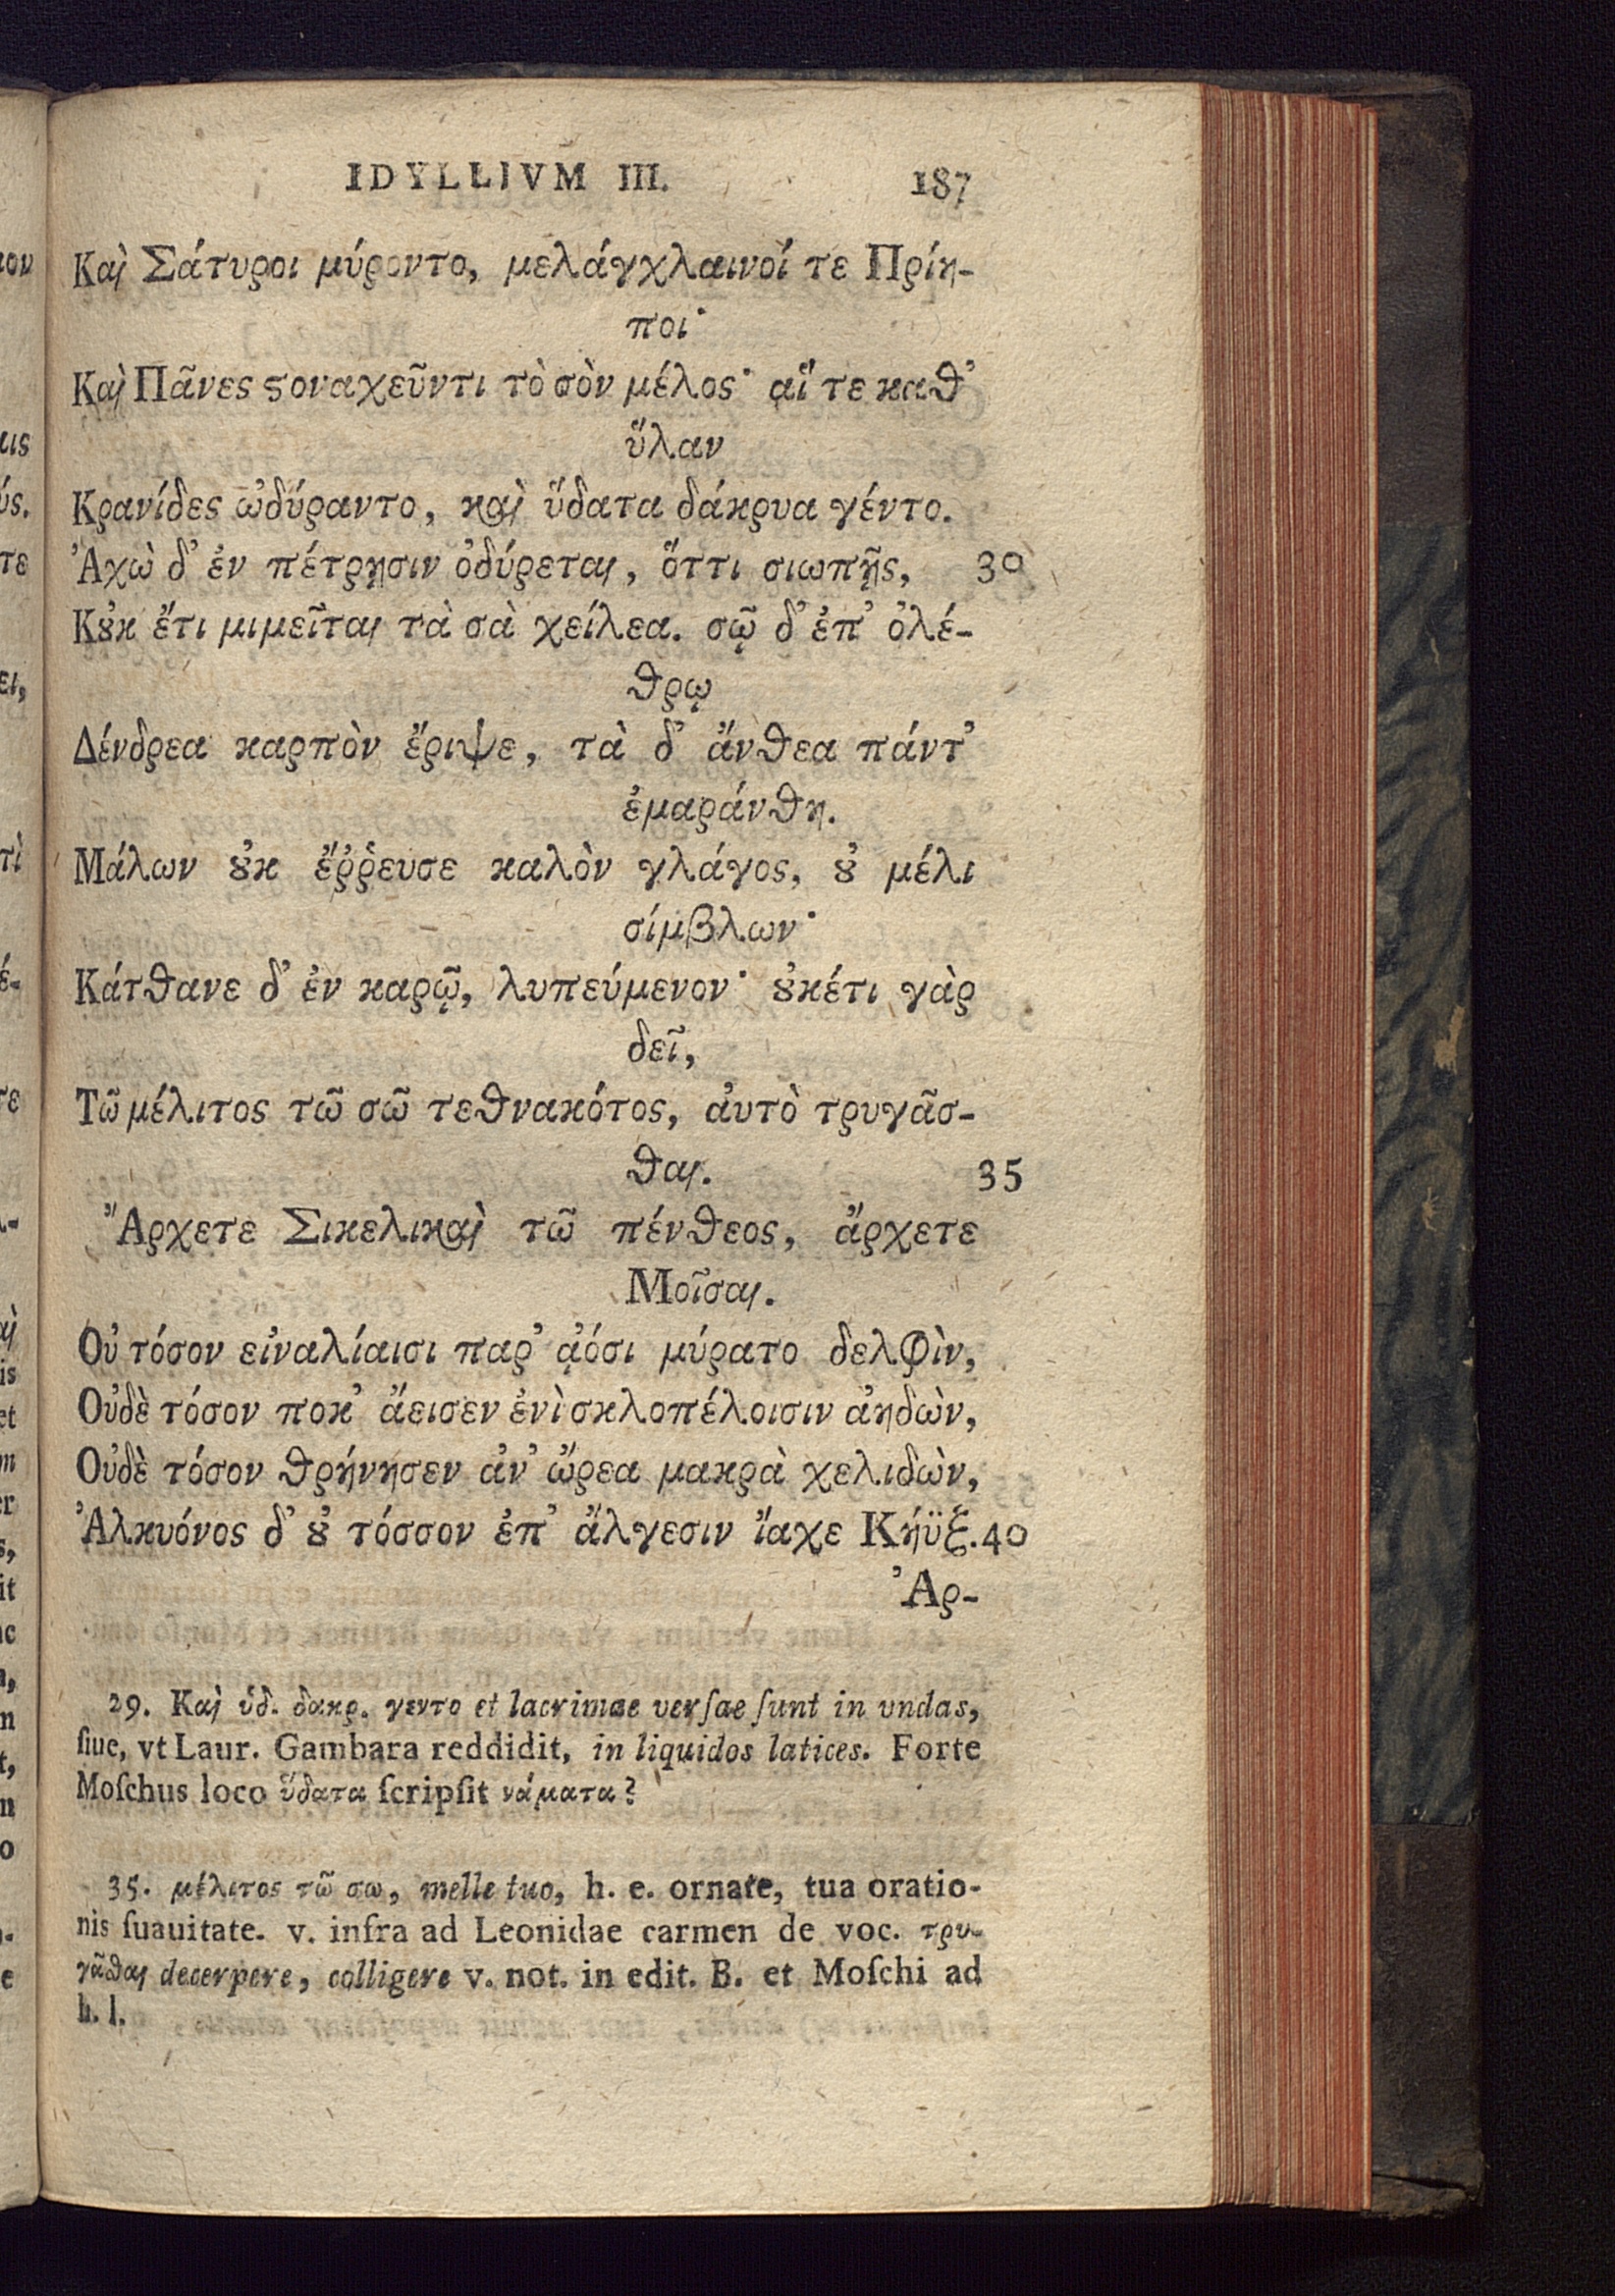 IDYLLIVM III. 187
Καὶ Σάτυροι μύροντο, μελάγχλαινοί τε Πρίη-
ποι·
Καὶ Πᾶνες ϛοναχεῦντι τὸ σὸν μέλος· αἵ τε καθ'
ὕλαν
Κρανίδες ὠδύραντο, καὶ ὕδατα δάκρυα γέντο.
Ἀχὼ δ' ἐν πέτρῃσιν ὀδύρεται, ὅττι σιωπῇς, 30
Κοὐκ ἔτι μιμεῖται τὰ σὰ χείλεα. σῷ δ' ἐπ' ὀλέ-
θρῳ
Δένδρεα καρπὸν ἔριψε, τὰ δ' ἄνθεα πάντ'
ἐμαράνθη.
Μάλων οὐκ ἔῤῥευσε καλὸν γλάγος, οὐ μέλι
σίμβλων·
Κάτθανε δ' ἐν καρῷ, λυπεύμενον· οὐκέτι γὰρ
δεῖ,
Τῶ μέλιτος τῶ σῶ τεθνακότος, ἀυτὸ τρυγᾶσ-
θαι. 35
Ἄρχετε Σικελικαὶ τῶ πένθεος, ἄρχετε
Μοῖσαι.
Οὐ τόσον εἰναλίαισι παρ' ᾀόσι μύρατο δελφὶν,
Οὐδὲ τόσον ποκ' ἄεισεν ἐνὶ σκλοπέλοισιν ἀηδὼν,
Οὐδὲ τόσον θρήνησεν ἀν' ὤρεα μακρὰ χελιδὼν,
Ἀλκυόνος δ' οὐ τόσσον ἐπ' ἄλγεσιν ἴαχε Κήϋξ. 40
Ἀρ-
29. Καὶ ὑδ. δακρ. γεντο et lacrimae verſae ſunt in vndas,
ſiue, vt Laur. Gambara reddidit, in liquidos latices. Forte
Moſchus loco ὕδατα ſcripſit νάματα?
35. μέλιτος τῶ σω, melle tuo, h. e. ornate, tua oratio-
nis ſuauitate. v. infra ad Leonidae carmen de voc. τρυ-
γᾶσθαι decerpere, colligere v. not. in edit. B. et Moſchi ad
h. l.